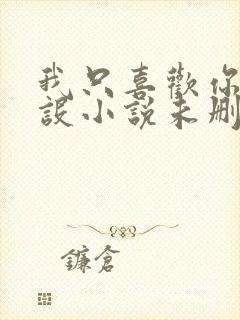 我只喜歡你
設小說未刪
鐮倉